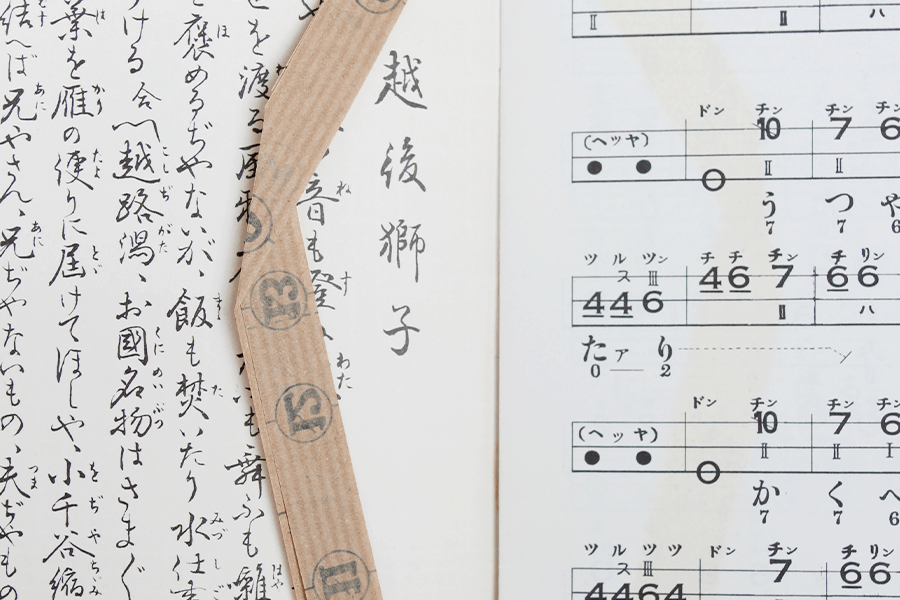 越後獅子
音も
せを渡る
も舞ふも囃
を褒めるぢやないが、飯も焚いたり水仕
ける 合〽越路潟、お國名物はさまぐ
業を雁の便りに届けてほしや、小千谷縮
結へば兄やさん、兄ぢやないもの、夫ぢやもの
13
12
11
Ⅱ Ⅱ ハ
ドン チン チン チン
(ヘッヤ) 10 7 6
Ⅱ Ⅱ
う つ や
7 7 6
ツ ル ツン チ チ チン チ リン
ス Ⅲ
4 4 6 4 6 7 6 6
Ⅱ ハ
た ア り
0 2
ドン チン チン チン
(ヘッヤ) 10 7 6
Ⅱ Ⅱ Ⅰ
か く へ
7 7 6
ツ ル ツ ツ ドン チン チ リン
ス Ⅲ
4 4 6 4 7 6 6